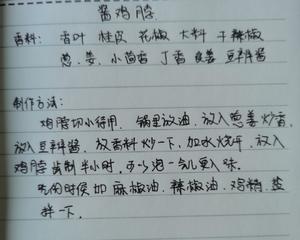 酱鸡脖
香料: 香叶 桂皮 花椒 大料 干辣椒
葱、姜、小茴香 丁香 良姜 豆瓣酱
制作方法:
鸡脖切小待用. 锅里放油, 放入葱姜炒香,
放入豆瓣酱、放香料炒一下, 加水烧开, 放入
鸡脖酱制半小时, 可以泡一会儿更入味.
吃的时候加麻椒油、辣椒油、鸡精、盐
拌一下.